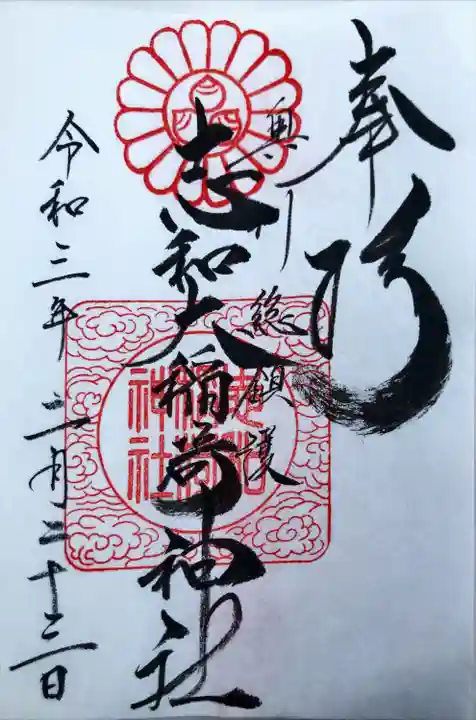 奉拝
奥州総鎮護
志和大稲荷神社
令和三年二月二十三日
志和
稲荷
神社